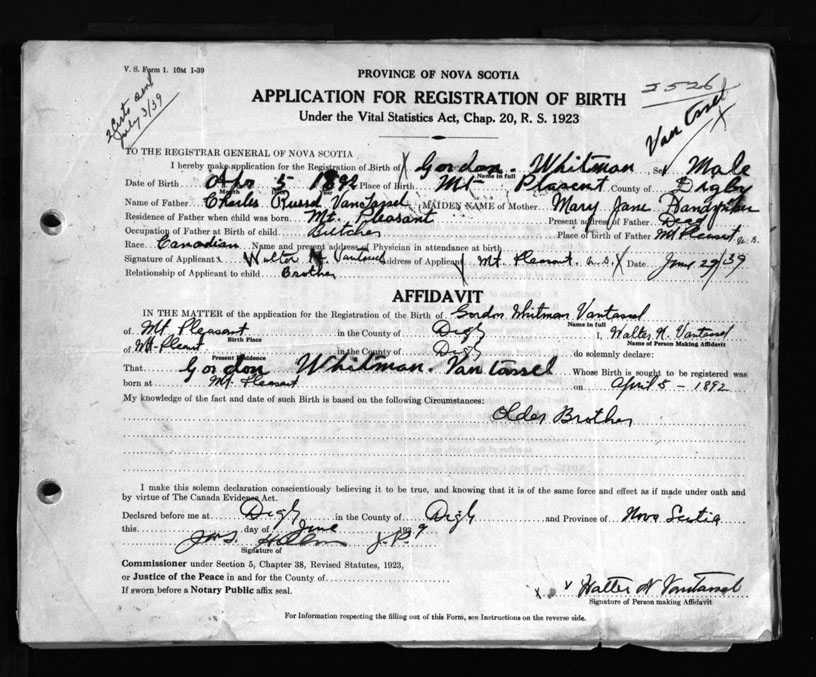 V. S. Form 1. 10M 1-39
PROVINCE OF NOVA SCOTIA
2526
APPLICATION FOR REGISTRATION OF BIRTH
Under the Vital Statistics Act, Chap. 20, R. S. 1923
July 3/39
Van Tassel X
TO THE REGISTRAR GENERAL OF NOVA SCOTIA
I hereby make application for the Registration of Birth of Gordon Whitman Sex Male
Name in full
Date of Birth Apr 5 1892 Place of Birth Mt Plasent County of Digby
Month
Name of Father Charles Russel VanTassel MAIDEN NAME of Mother Mary Jane
Residence of Father when child was born Mt. Pleasant Present address of Father
Occupation of Father at Birth of child Butcher Place of birth of Father Mt Plesant N.S.
Race Canadian Name and present address of Physician in attendance at birth
Signature of Applicant x Walter N Vantassel Address of Applicant Mt. Plesant. N.S. X Date June 29/39
Relationship of Applicant to child Brother
AFFIDAVIT
IN THE MATTER of the application for the Registration of the Birth of Gordon Whitman Vantassel
Name in full
of Mt. Pleasant in the County of Digby I, Walter N. Vantassel
Birth Place Name of Person Making Affidavit
of Mt. Pleasant in the County of Digby do solemnly declare:
Present Residence
That Gordon Whitman Vantassel Whose Birth is sought to be registered was
born at Mt. Pleasant on April 5 - 1892
My knowledge of the fact and date of such Birth is based on the following Circumstances:
Older Brother
I make this solemn declaration conscientiously believing it to be true, and knowing that it is of the same force and effect as if made under oath and
by virtue of The Canada Evidence Act.
Declared before me at Digby in the County of Digby and Province of Nova Scotia
this day of June 1939
J.P.
Signature of
Commissioner under Section 5, Chapter 38, Revised Statutes, 1923,
or Justice of the Peace in and for the County of
If sworn before a Notary Public affix seal.
x x Walter N Vantassel
Signature of Person making Affidavit
For Information respecting the filling out of this Form, see Instructions on the reverse side.